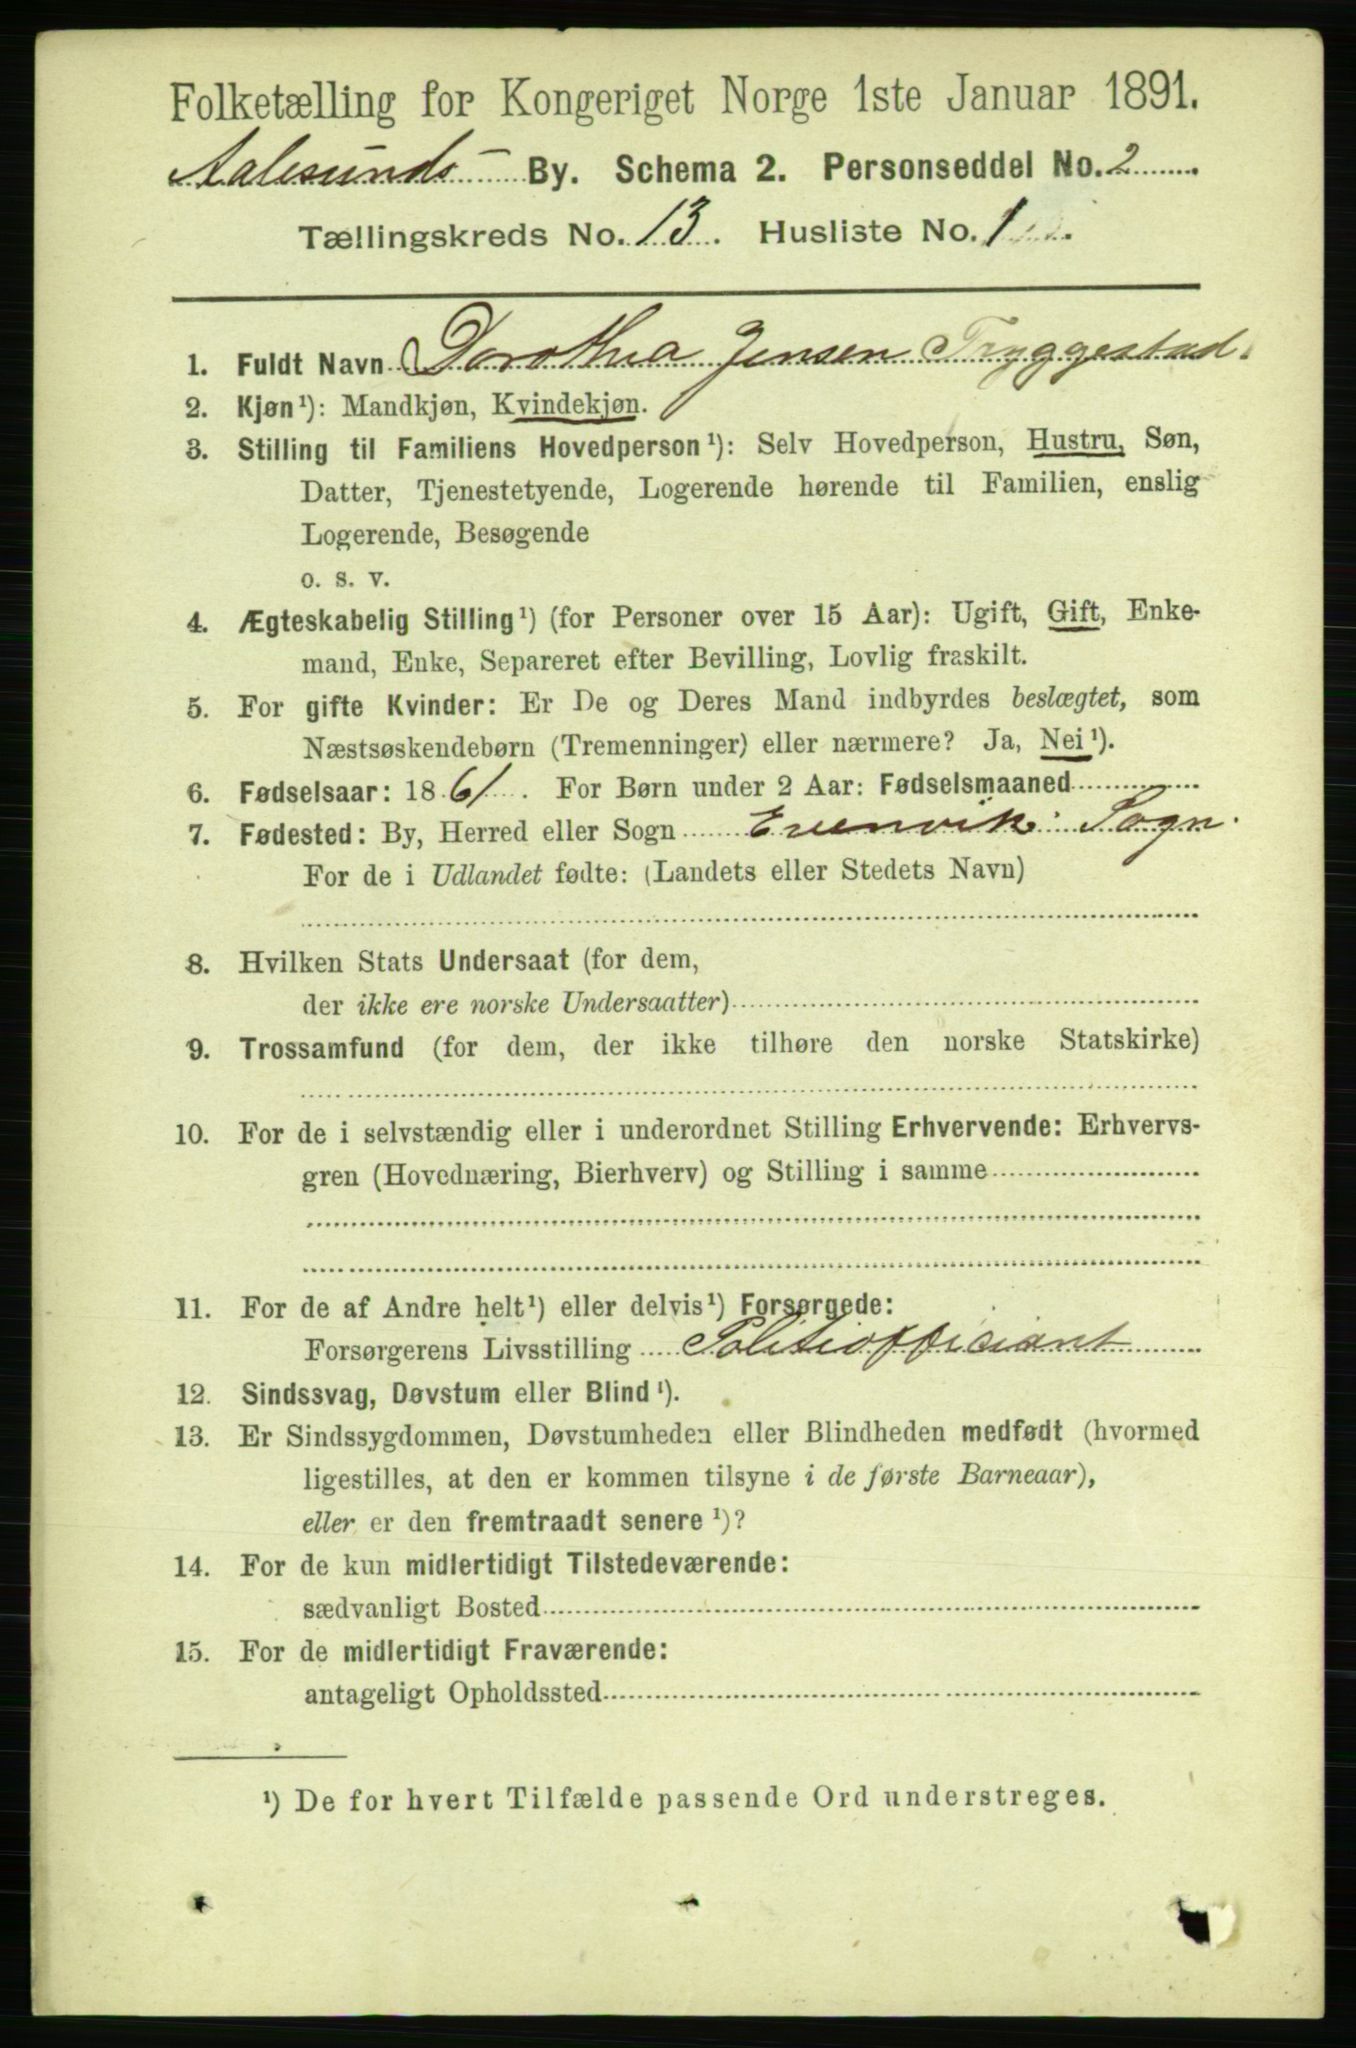 Folketælling for Kongeriget Norge 1ste Januar 1891.
Aalesunds By. Schema 2. Personseddel No. 2
Tællingskreds No. 13. Husliste No. 1
1. Fuldt Navn Dorothea Jensen Tryggestad.
2. Kjøn¹): Mandkjøn, Kvindekjøn.
3. Stilling til Familiens Hovedperson¹): Selv Hovedperson, Hustru, Søn,
Datter, Tjenestetyende, Logerende hørende til Familien, enslig
Logerende, Besøgende
o. s. v.
4. Ægteskabelig Stilling¹) (for Personer over 15 Aar): Ugift, Gift, Enke-
mand, Enke, Separeret efter Bevilling, Lovlig fraskilt.
5. For gifte Kvinder: Er De og Deres Mand indbyrdes beslægtet, som
Næstsøskendebørn (Tremenninger) eller nærmere? Ja, Nei¹).
6. Fødselsaar: 1861. For Børn under 2 Aar: Fødselsmaaned
7. Fødested: By, Herred eller Sogn Evenvik Sogn.
For de i Udlandet fødte: (Landets eller Stedets Navn)
8. Hvilken Stats Undersaat (for dem,
der ikke ere norske Undersaatter)
9. Trossamfund (for dem, der ikke tilhøre den norske Statskirke)
10. For de i selvstændig eller i underordnet Stilling Erhvervende: Erhvervs-
gren (Hovednæring, Bierhverv) og Stilling i samme
11. For de af Andre helt¹) eller delvis¹) Forsørgede:
Forsørgerens Livsstilling Politiofficiant
12. Sindssvag, Døvstum eller Blind¹).
13. Er Sindssygdommen, Døvstumheden eller Blindheden medfødt (hvormed
ligestilles, at den er kommen tilsyne i de første Barneaar),
eller er den fremtraadt senere¹)?
14. For de kun midlertidigt Tilstedeværende:
sædvanligt Bosted
15. For de midlertidigt Fraværende:
antageligt Opholdssted
¹) De for hvert Tilfælde passende Ord understreges.